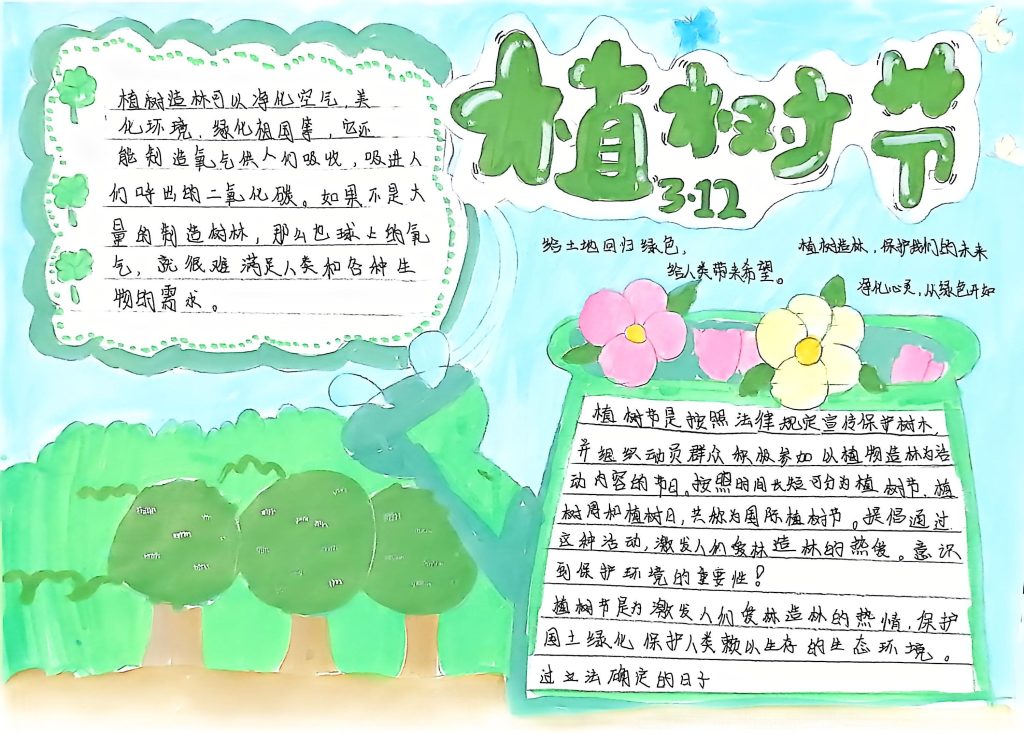 植树节
3·12
植树造林可以净化空气,美
化环境,绿化祖国等,它还
能制造氧气供人们吸收,吸进人
们呼出的二氧化碳。如果不是大
量的制造树林,那么地球上的氧
气,就很难满足人类和各种生
物的需求。
给土地回归绿色,
给人类带来希望。
植树造林,保护我们的未来
净化心灵,从绿色开始
植树节是按照法律规定宣传保护树木,
并组织动员群众积极参加以植物造林为活
动内容的节日。按照时间长短可分为植树节,植
树周和植树日,共称为国际植树节。提倡通过
这种活动,激发人们爱林造林的热候。意识
到保护环境的重要性!
植树节是为激发人们爱林造林的热情,保护
国土绿化保护人类赖以生存的生态环境。
过立法确定的日子